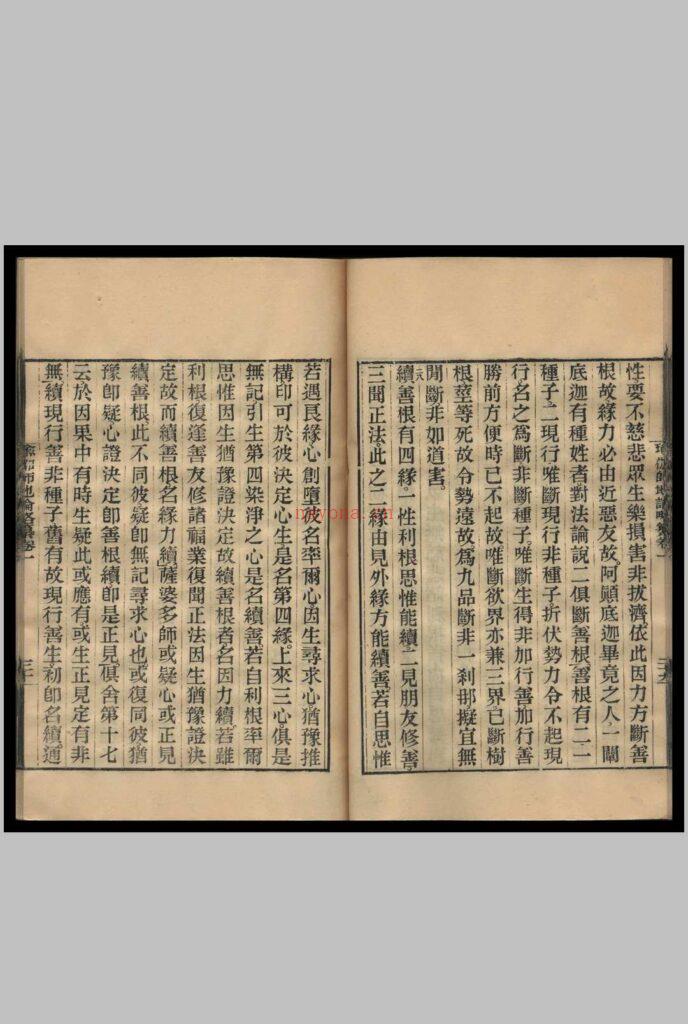 性耍不慈悲眾生樂損害非拔濟依此因力方斷善
根故緣力必由近惡友故阿顛底迦畢竟之人一闡
底迦有種姓者對法論說二俱斷善根善根有二一
種子二現行唯斷現行非種子折伏勢力令不起現
行名之爲斷非斷種子唯斷生得非加行善加行善
勝前方便時已不起故唯斷欲界亦兼三界已斷樹
根莖等死故令勢遠故爲九品斷非一剎那擬宜無
間斷非如道害
續善根有四緣一性利根思惟能續二見朋友修善
三聞正法此之二緣由見外緣方能續善若自思惟
若遇良緣心創墮彼名率爾心因生尋求心猶豫推
構印可於彼決定心生是名第四緣上來三心俱是
無記引生第四染淨之心是名續善若自利根率爾
思惟因生猶豫證決定故續善根者名因力續若雖
利根復逢善友修諸福業復聞正法因生猶豫證決
定故而續善根名緣力續薩婆多師或疑心或正見
續善根此不同彼疑卽無記尋求心也或復同彼猶
豫卽疑心證決定卽善根續卽是正見俱舍第十七
云於因果中有時生疑此或應有或生正見定有非
無續現行善非種子舊有故現行善生初卽名續通